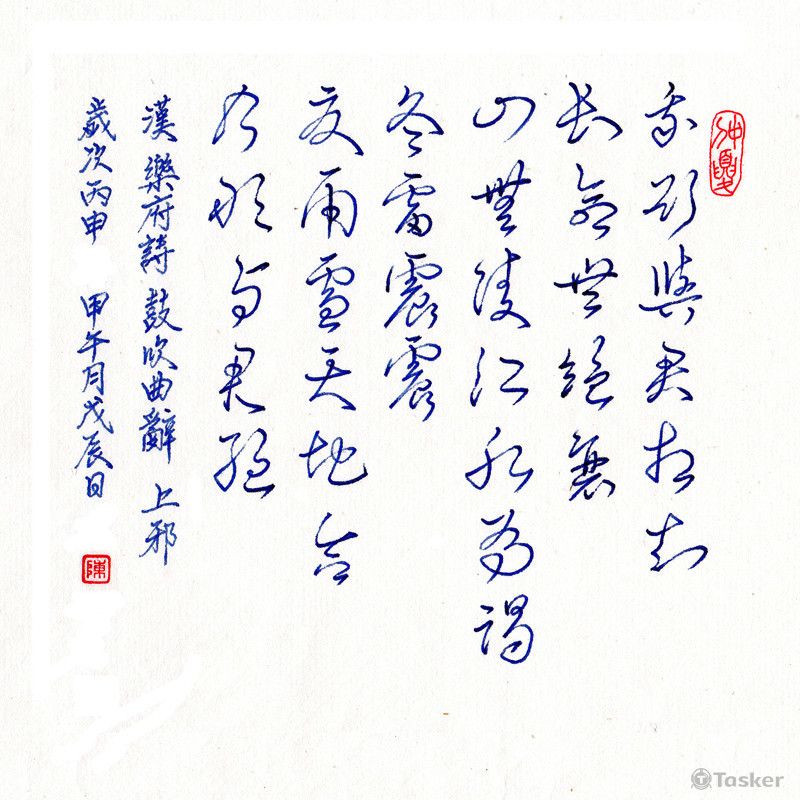 仲夏
我欲與君相知
長命無絕衰
山無陵江水為竭
冬雷震震
夏雨雪天地合
乃敢与君絕
漢 樂府詩 鼓吹曲辭 上邪
歲次丙申 甲午月戊辰日
陳
Tasker